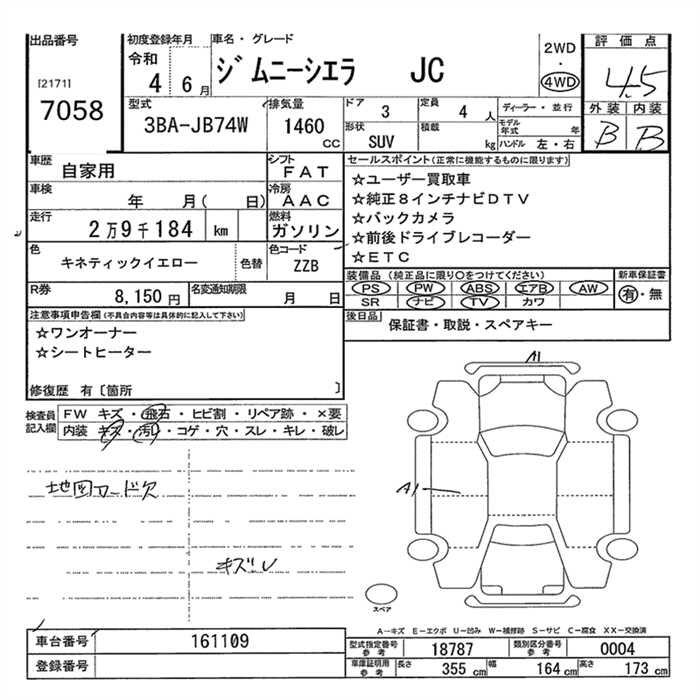 出品番号
[2171]
7058
初度登録年月
令和
4 6月
車名・グレード
ジムニーシエラ JC
2WD
・
4WD
評価点
4.5
外装 内装
B B
型式
3BA-JB74W
排気量
1460
CC
ドア 3
定員 4 人
形状 SUV
積載 kg
ディーラー・並行
モデル年式 年
ハンドル 左・右
車歴 自家用
シフト FAT
車検 年 月( 日)
冷房 AAC
走行 2万9千184 km
燃料 ガソリン
色 キネティックイエロー
色替
色コード ZZB
R券 8,150円
名変通知期限 月 日
セールスポイント(正常に機能するものに限ります)
☆ユーザー買取車
☆純正8インチナビDTV
☆バックカメラ
☆前後ドライブレコーダー
☆ETC
装備品(純正品に限り○をつけてください)
PS PW ABS エアB AW
SR ナビ TV カワ
新車保証書
有・無
後日品 保証書・取説・スペアキー
注意事項申告欄(不具合内容等は具体的に記入して下さい)
☆ワンオーナー
☆シートヒーター
修復歴 有〔箇所 〕
検査員記入欄
FW キズ・飛石・ヒビ割・リペア跡・×要
内装 キズ・汚れ・コゲ・穴・スレ・キレ・破レ
地図カード欠
キズレ
A1
A1
スペア
A―キズ E―エクボ U―凹み W―補修跡 S―サビ C―腐食 XX―交換済
車台番号 161109
登録番号
型式指定番号参考 18787
類別区分番号参考 0004
車庫証明用参考
長さ 355 cm
幅 164 cm
高さ 173 cm